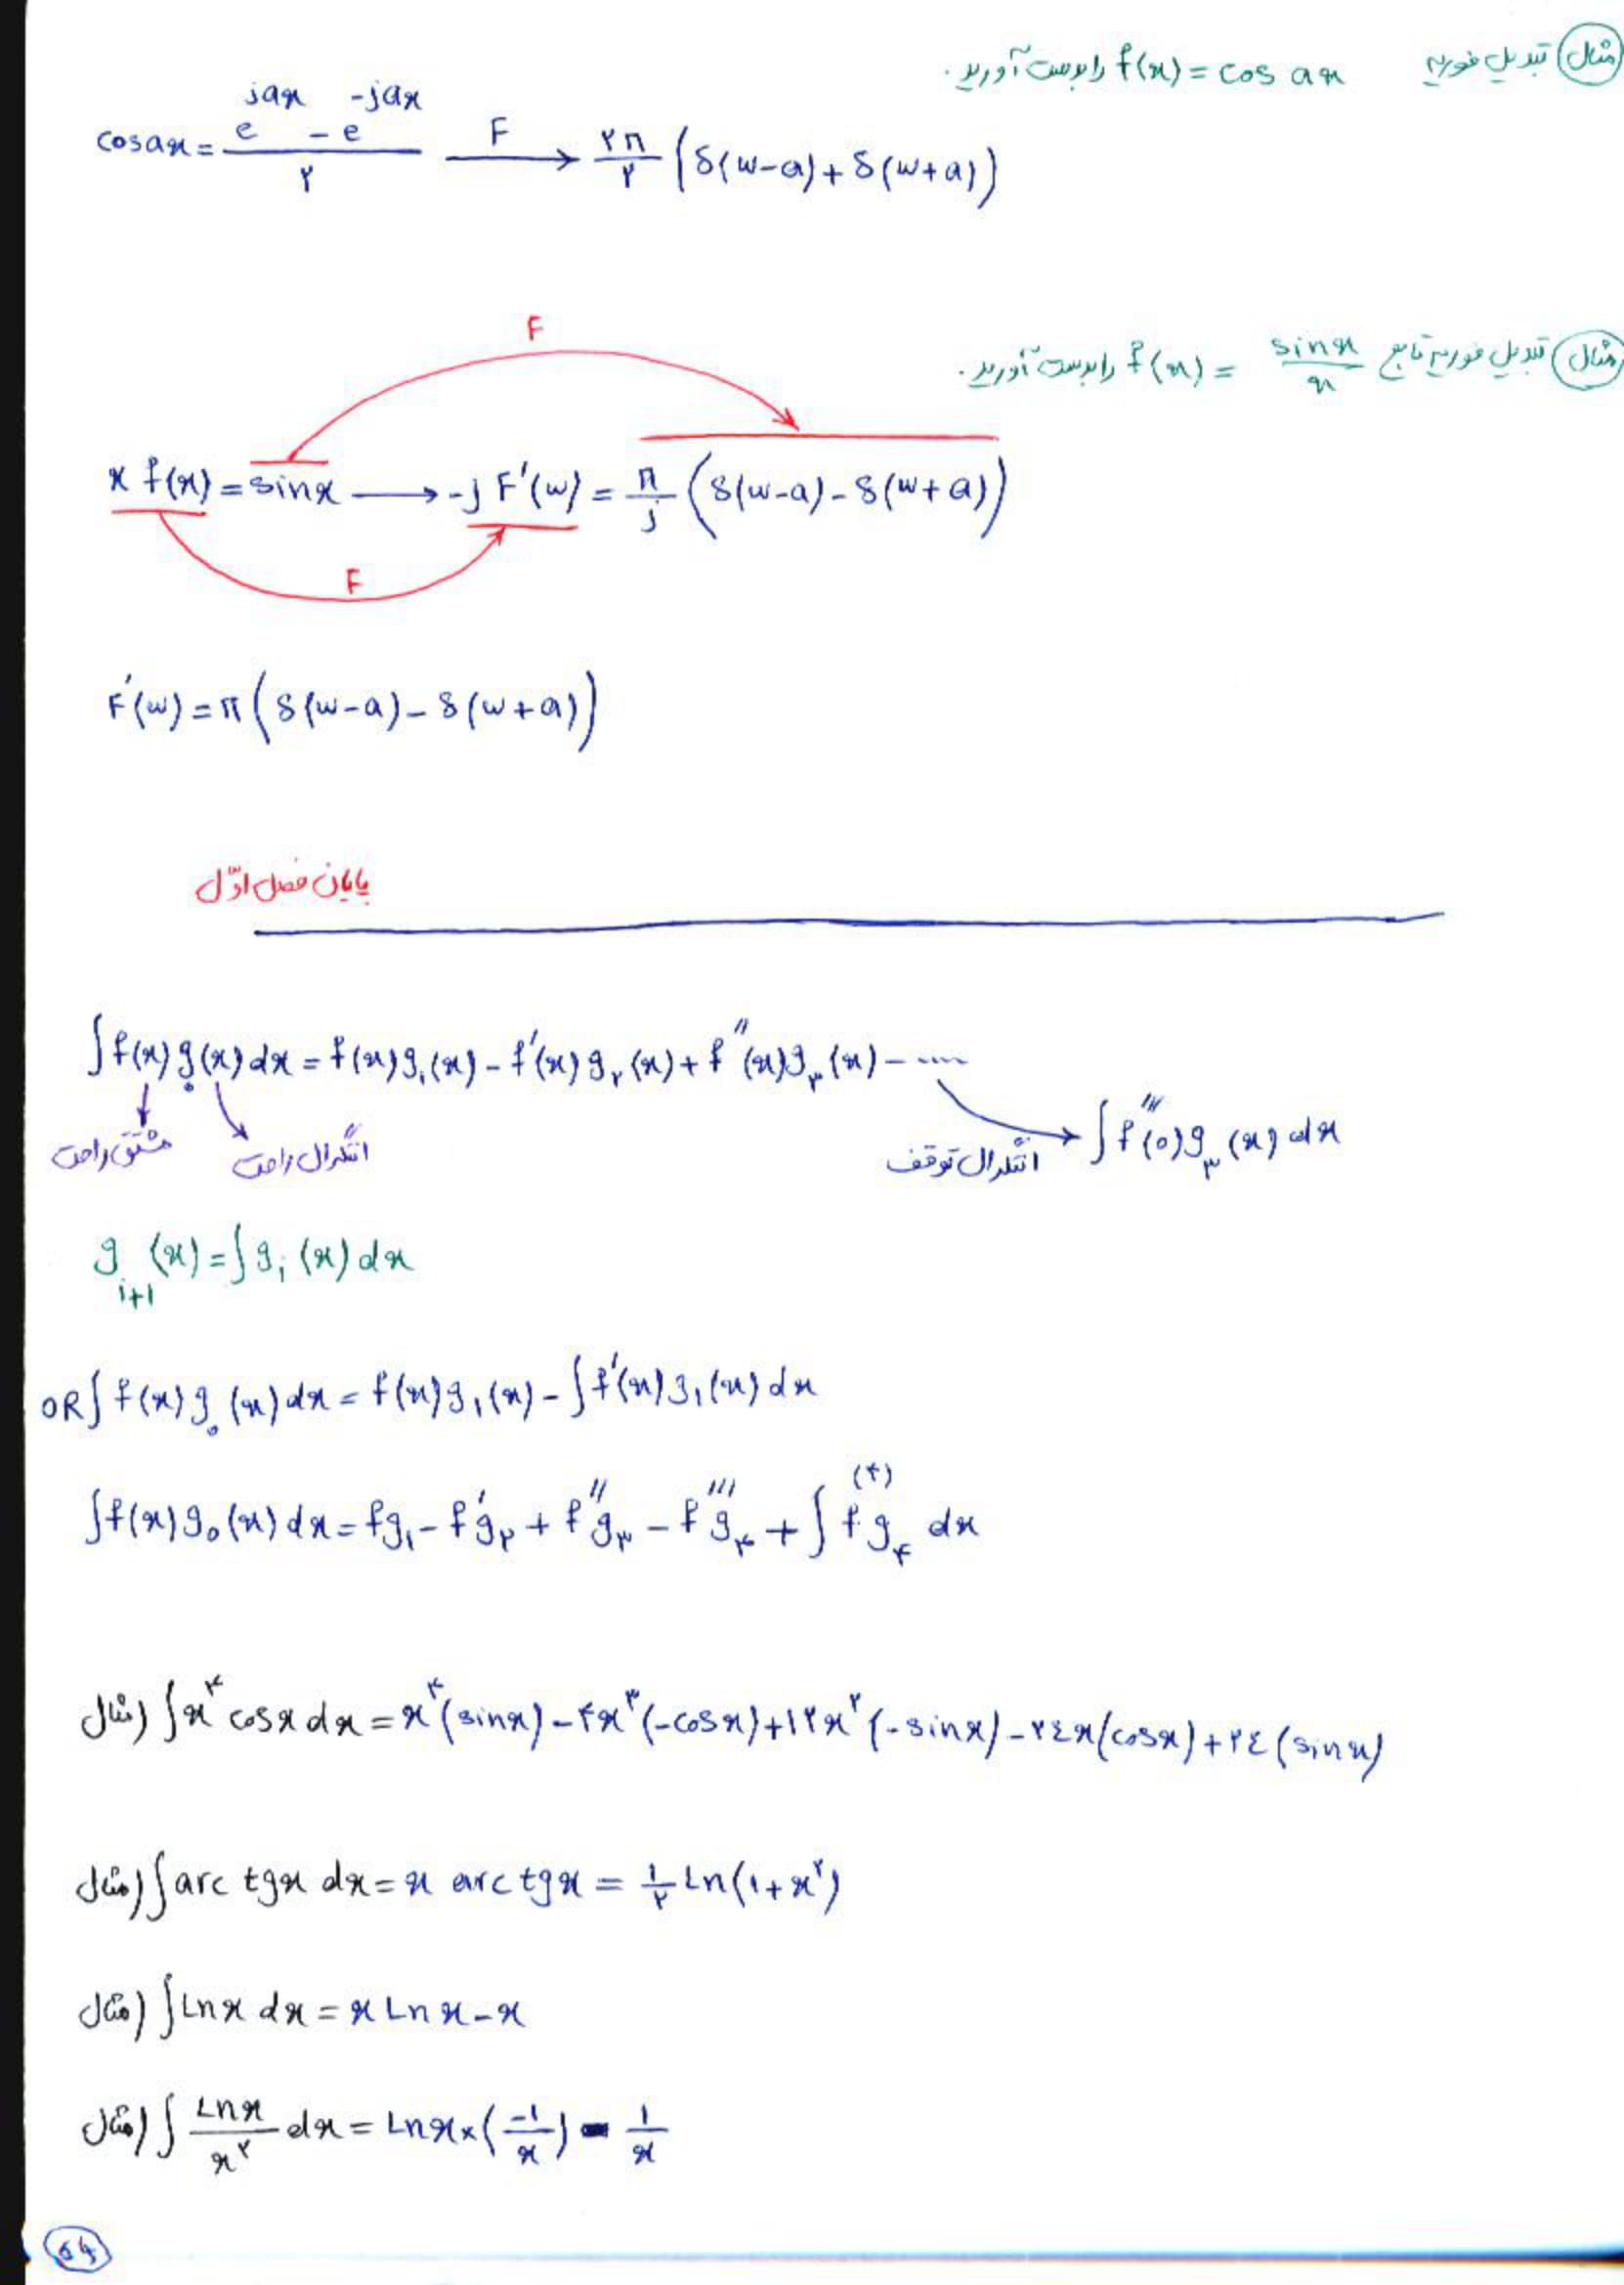 مثال) تبدیل فوریه f(x) = cos ax را بدست آورید.
cos ax = (e^{jax} - e^{-jax})/۲ —F→ (۲π/۲) (δ(w-a) + δ(w+a))
مثال) تبدیل فوریه تابع f(x) = sin x / x را بدست آورید.
F
x f(x) = sin x ⟶ -j F'(w) = (π/j) (δ(w-a) - δ(w+a))
F
F'(w) = π (δ(w-a) - δ(w+a))
پایان فصل اوّل
∫ f(x) g₀(x) dx = f(x) g₁(x) - f'(x) g₂(x) + f''(x) g₃(x) - ....
مشتق راحت انتگرال راحت انتگرال توقف → ∫ f'''(0) g₃(x) dx
g_{i+1}(x) = ∫ g_i(x) dx
OR ∫ f(x) g₀(x) dx = f(x) g₁(x) - ∫ f'(x) g₁(x) dx
∫ f(x) g₀(x) dx = fg₁ - f'g₂ + f''g₃ - f'''g₄ + ∫ f^{(۴)} g₄ dx
مثال) ∫ x^۴ cos x dx = x^۴ (sin x) - ۴x^۳ (-cos x) + ۱۲x^۲ (-sin x) - ۲٤x (cos x) + ۲٤ (sin x)
مثال) ∫ arc tg x dx = x arc tg x = (۱/۲) Ln(۱ + x^۲)
مثال) ∫ Ln x dx = x Ln x - x
مثال) ∫ (Ln x / x^۲) dx = Ln x × (-۱/x) - ۱/x